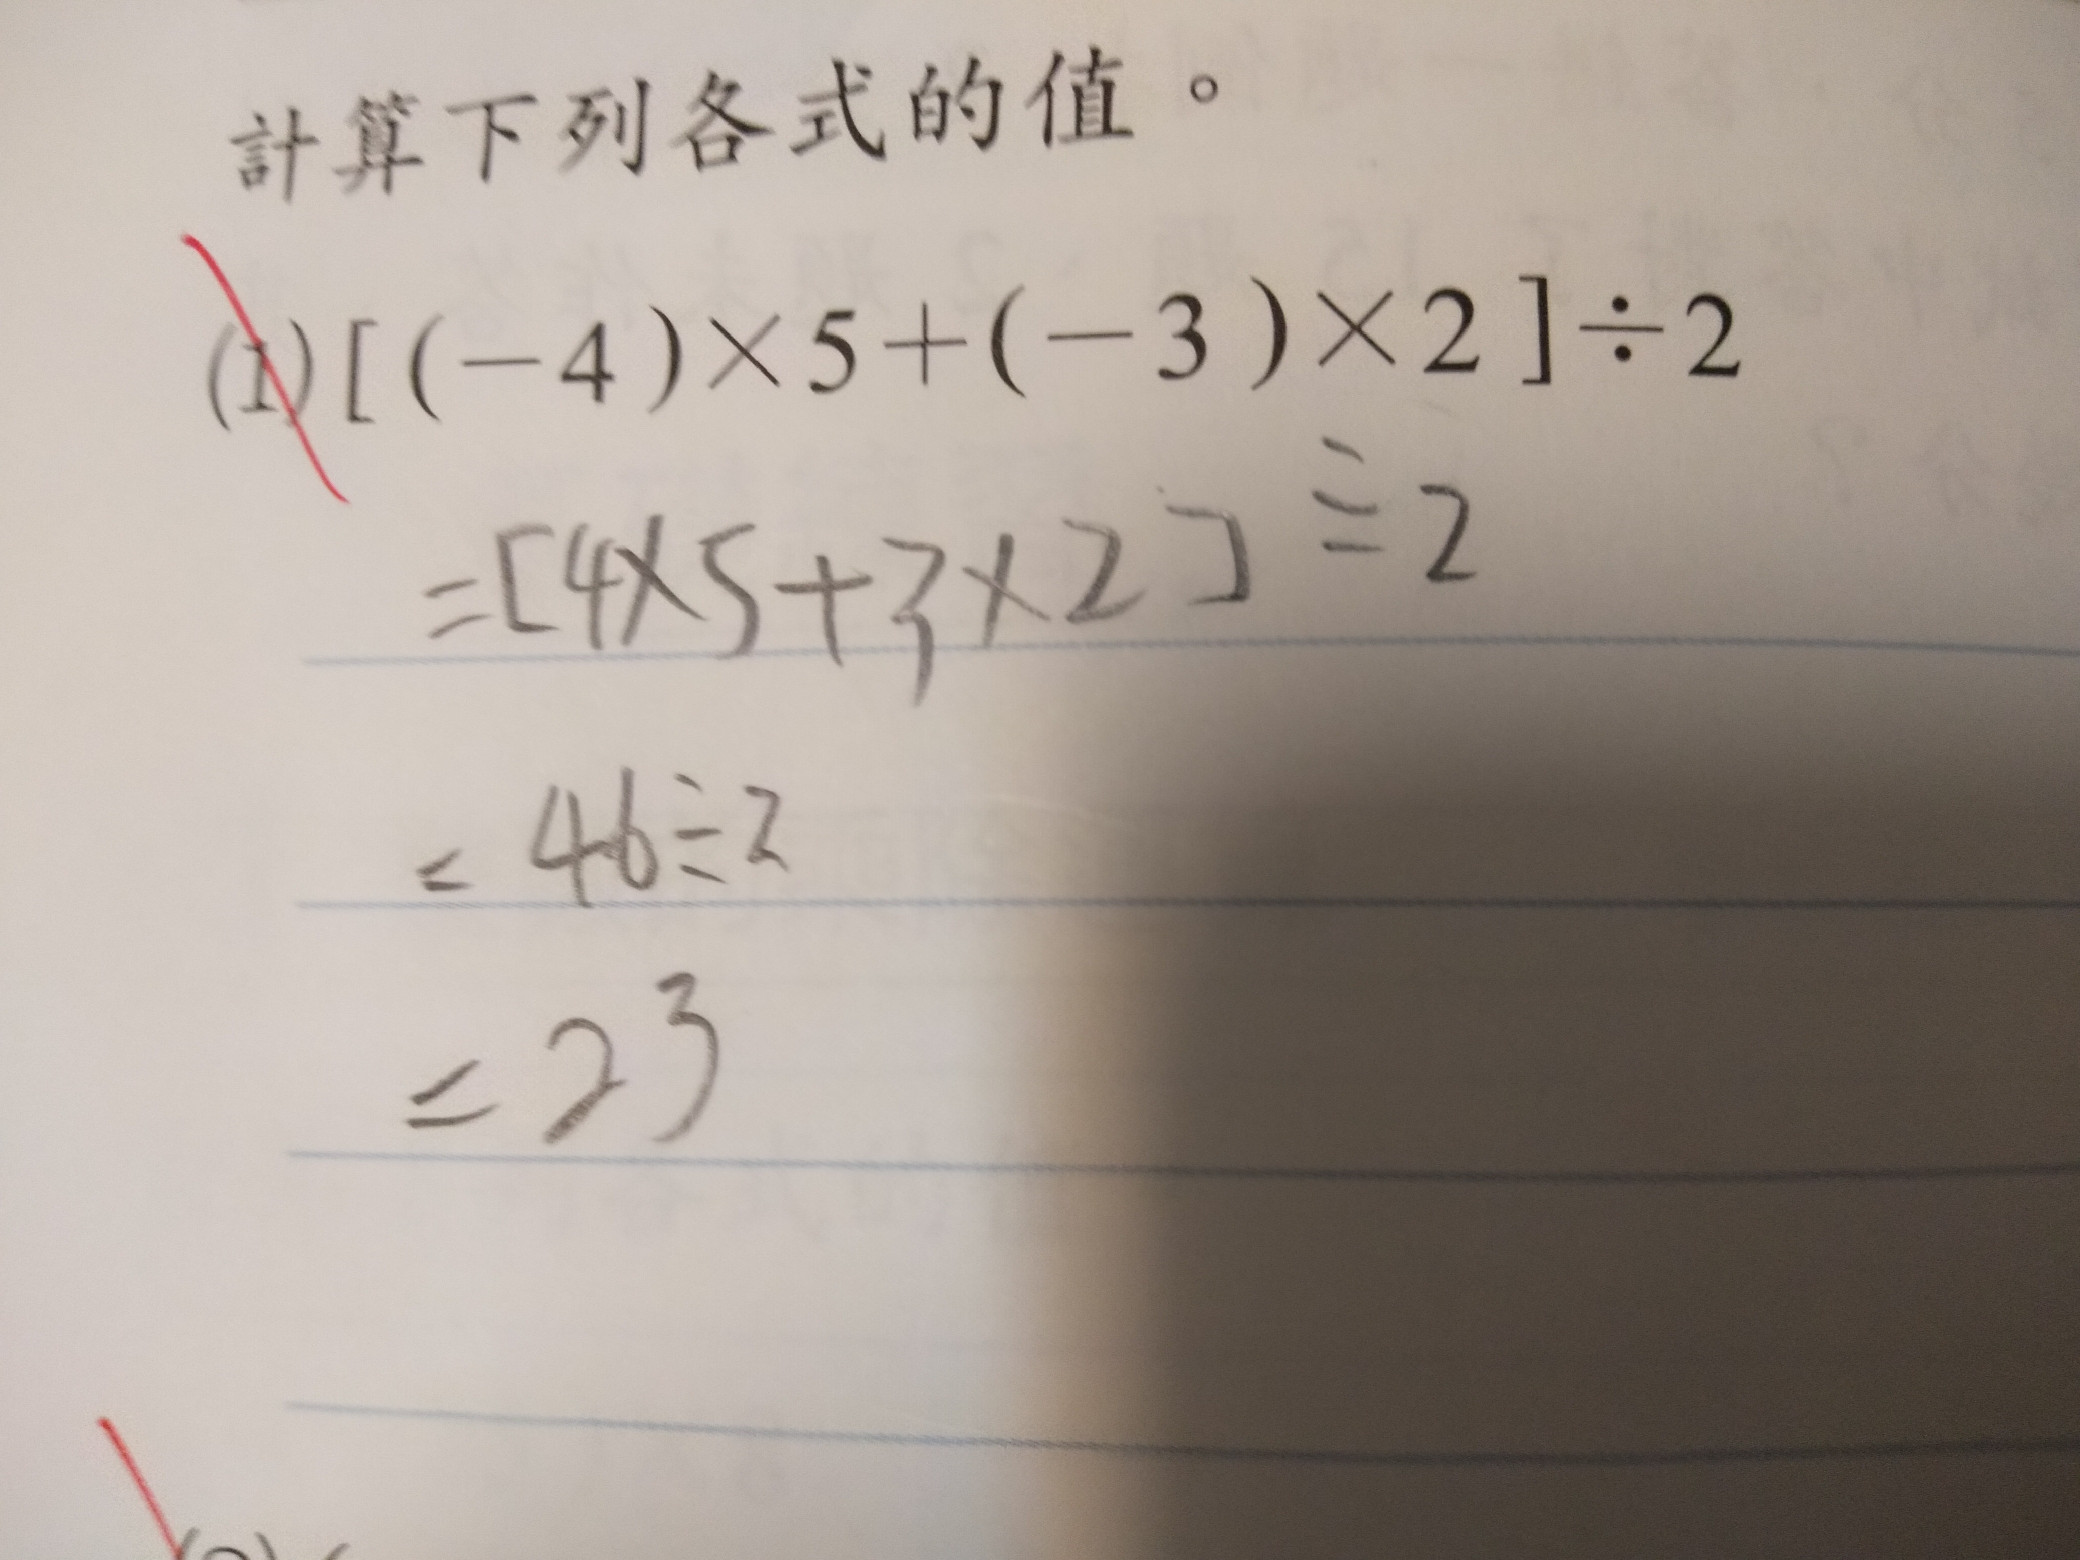 計算下列各式的值。
(1)[(-4)×5+(-3)×2]÷2
=[4×5+3×2]÷2
=46÷2
=23